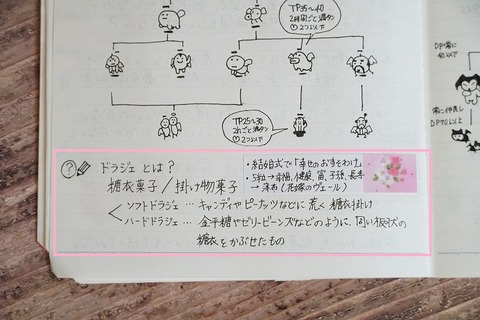 TP35〜40
2時間ごと満タン
♡2つ以下
TP25〜30
♡2つ以下
DP常に
ドラジェ とは？
糖衣菓子／掛け物菓子
ソフトドラジェ … キャンディやピーナッツなどに 荒く 糖衣掛け
ハードドラジェ … 金平糖やゼリービーンズなどのように、固い板状の
糖衣をかぶせたもの
・結婚式で「幸せのおすそわけ」
・5粒→幸福、健康、富、子孫、長寿
→薄布（花嫁のヴェール）